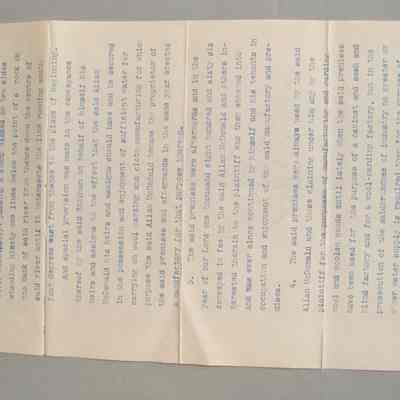 standing ninety one links below the point of a rock on
the bank of said river and thence to the centre of
said river until it intersects the line running south
four degrees west from thence to the place of beginning.
And special provision was made in the conveyance
thereof by the said Thomson on behalf of himself his
heirs and assigns to the effect that the said Allan
McDonald his heirs and assigns should have and be secured
in the possession and enjoyment of sufficient water for
carrying on wool carding and cloth manufacturing for which
purpose the said Allan McDonald became the proprietor of
the said premises and afterwards in the same year erected
a manufactory for that purpose thereon.
3. The said premises were afterwards and in the
year of our Lord one thousand eight hundred and sixty six
conveyed in fee by the said Allan McDonald and others in-
terested therein to the plaintiff who then entered into
and has ever since continued by himself and his tenants in
occupation and enjoyment of the said manufactory and pre-
mises.
4. The said premises were always used by the said
Allan McDonald and those claiming under him and by the
plaintiff for the purposes of manufacturing and carding
wool and woolen goods until lately when the said premises
have been used for the purpose of a cabinet and sash and
blind factory and for a wool-carding factory, but in the
prosecution of the said branches of industry no greater or
other water supply is required than for the purposes of